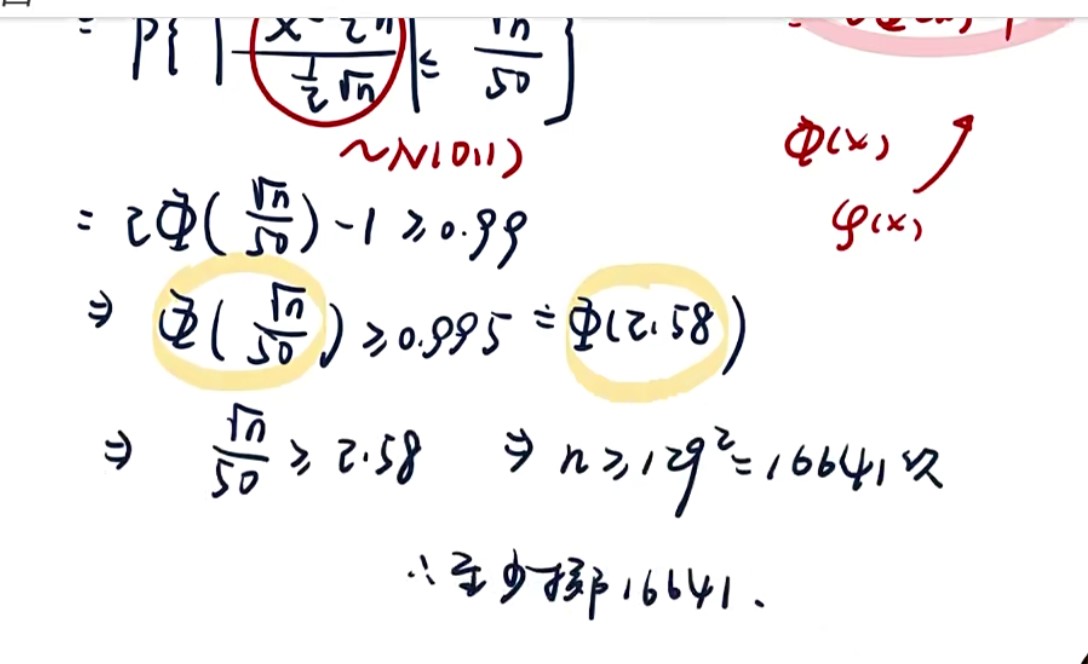 = P{ | (X - ½n) / (½√n) | ≤ √n/50 }
~N(0,1)
Φ(x)
φ(x)
= 2Φ(√n/50) - 1 ≥ 0.99
⇒ Φ(√n/50) ≥ 0.995 ≐ Φ(2.58)
⇒ √n/50 ≥ 2.58 ⇒ n ≥ 129² = 16641次
∴至少掷16641.